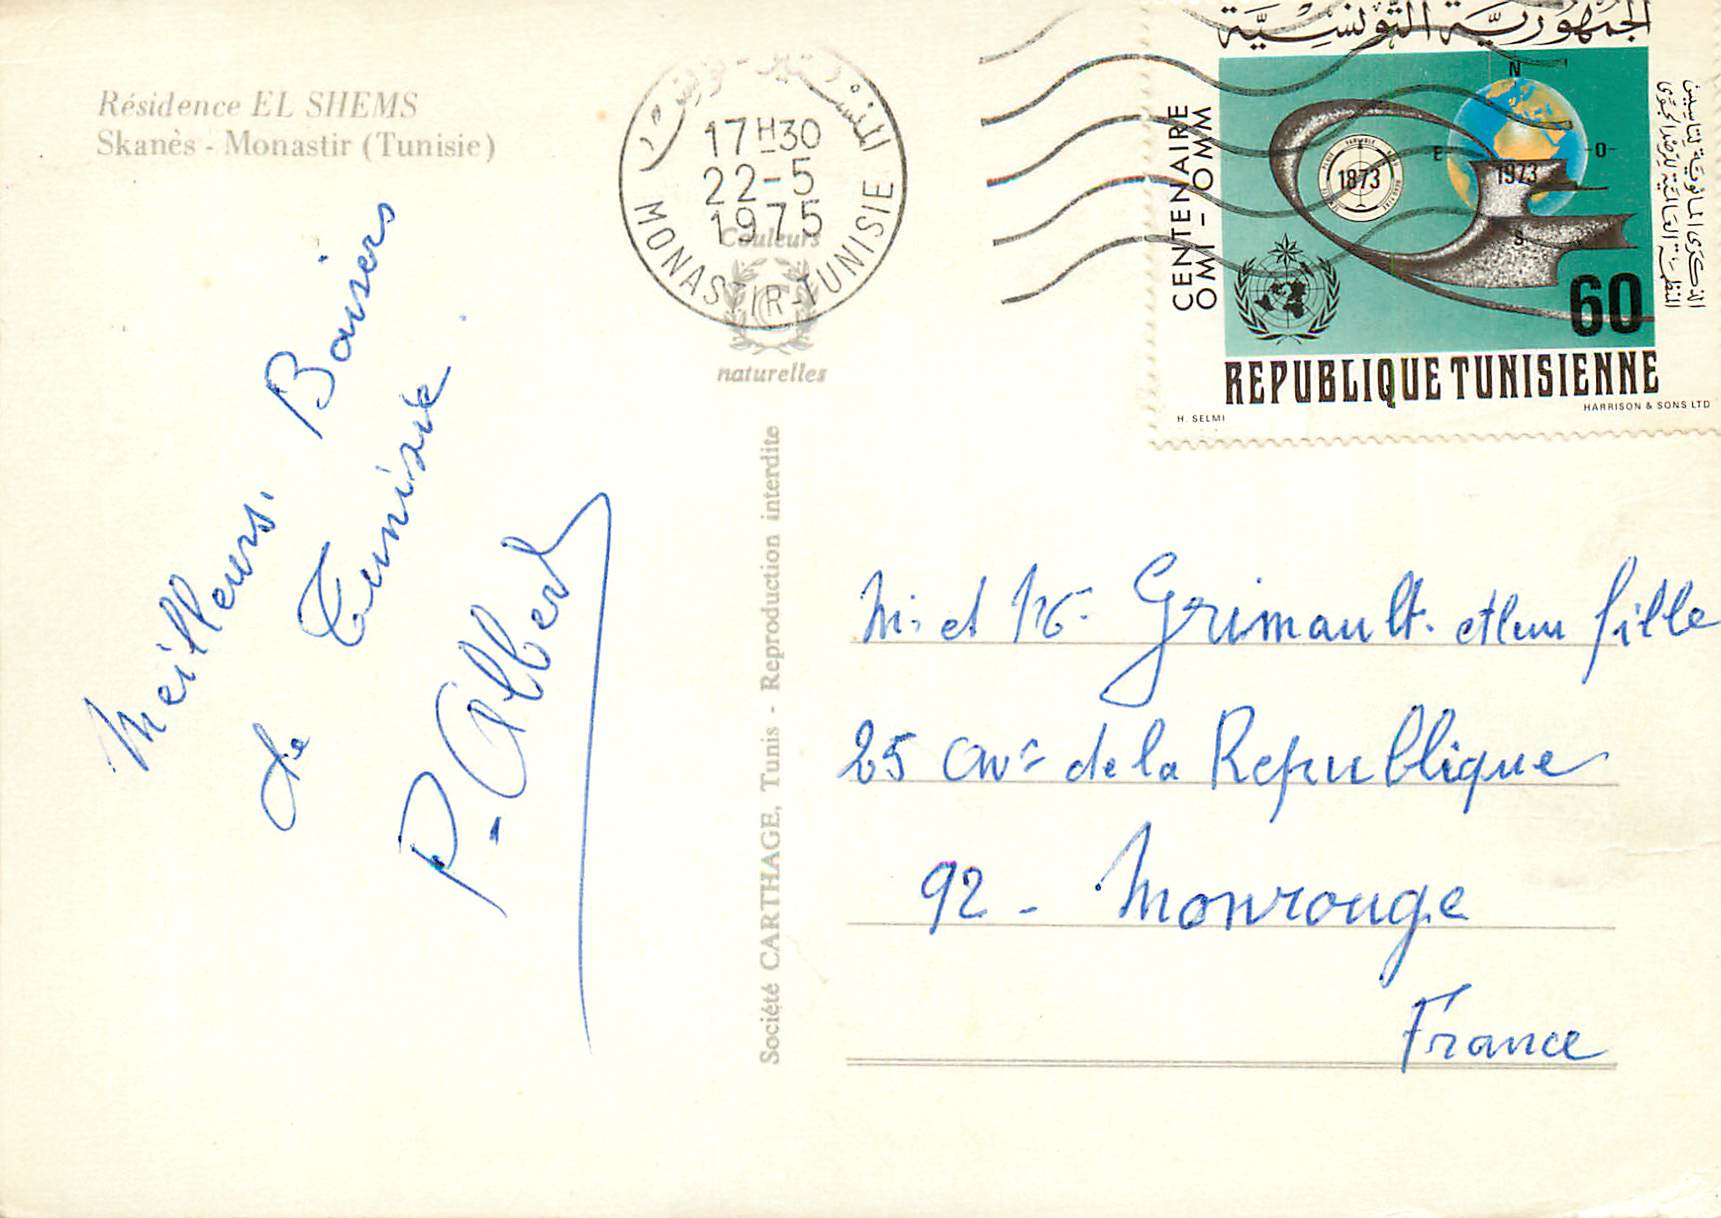 Résidence EL SHEMS
Skanès - Monastir (Tunisie)
Meilleurs Baisers
de Tunisie
P. Albert
Couleurs
naturelles
Société CARTHAGE, Tunis - Reproduction interdite
17H30
22-5
1975
MONASTIR-TUNISIE
الجمهورية التونسية
CENTENAIRE
OMI - OMM
N
E
O
S
1873
1973
60
REPUBLIQUE TUNISIENNE
H. SELMI
HARRISON & SONS LTD
M. et Me. Grimault. et leur fille
25 ave de la Republique
92 - Monrouge
France